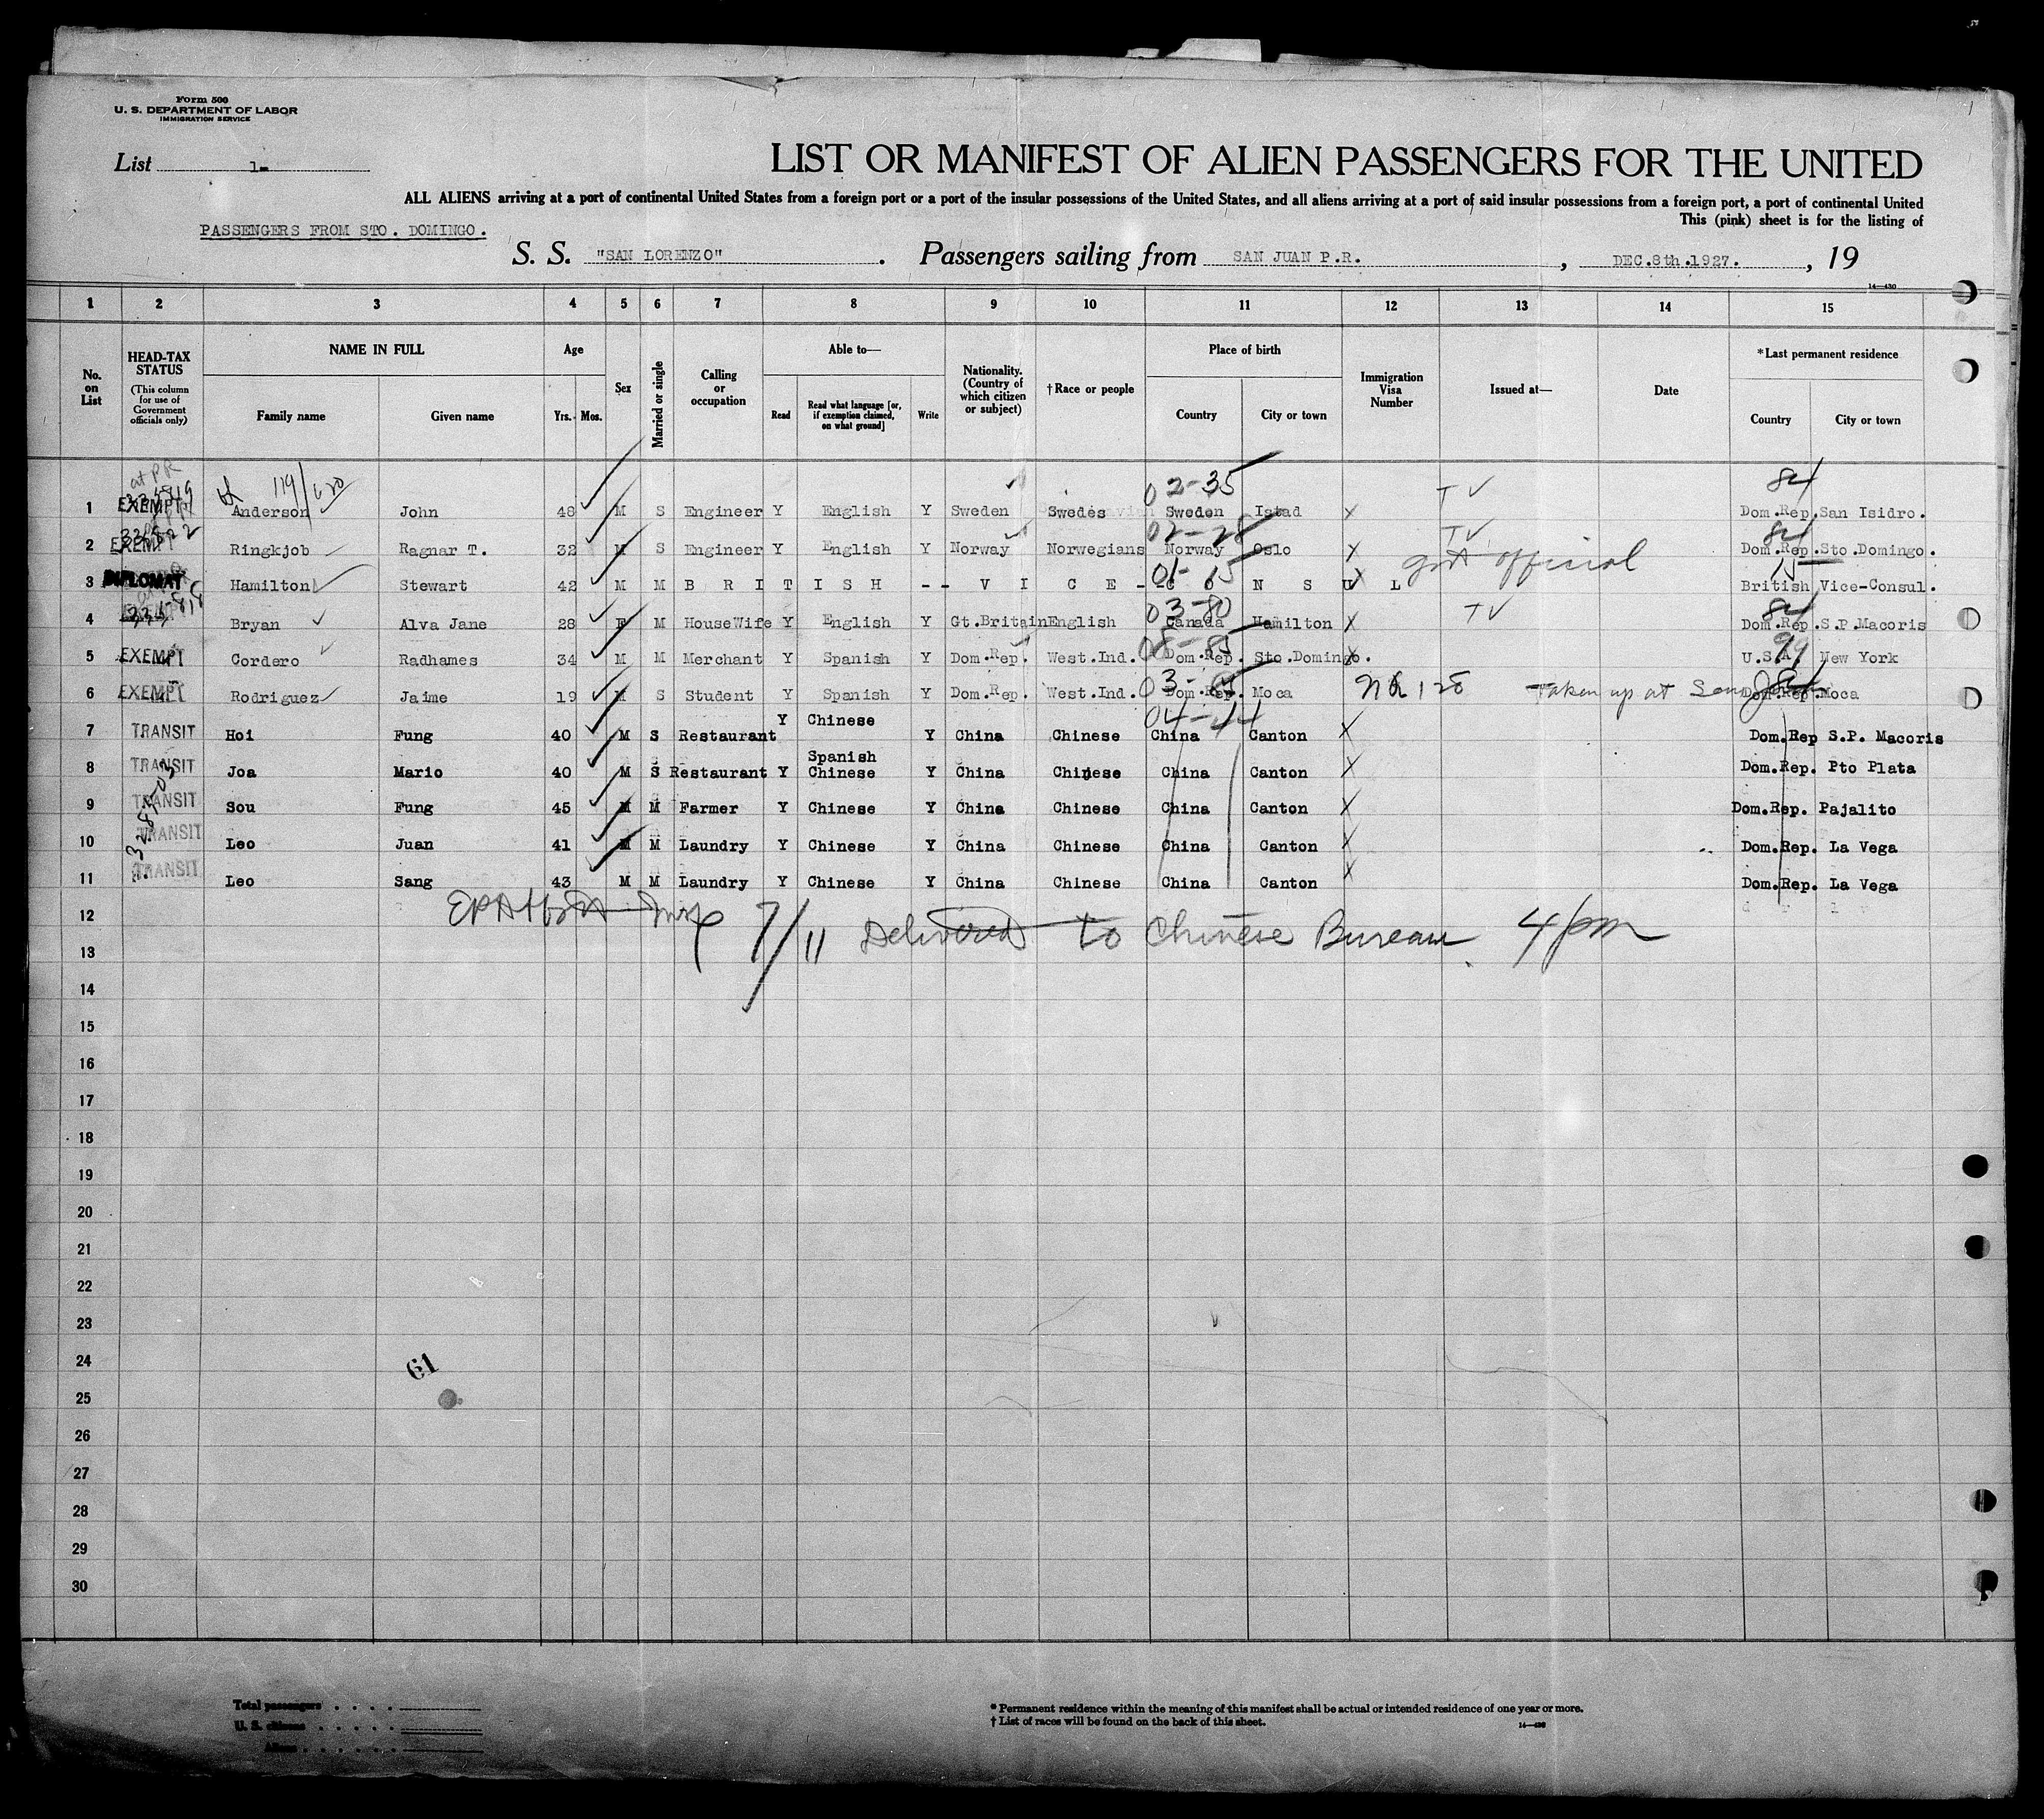 Form 500
U. S. DEPARTMENT OF LABOR
IMMIGRATION SERVICE
List 1-
LIST OR MANIFEST OF ALIEN PASSENGERS FOR THE UNITED
ALL ALIENS arriving at a port of continental United States from a foreign port or a port of the insular possessions of the United States, and all aliens arriving at a port of said insular possessions from a foreign port, a port of continental United
This (pink) sheet is for the listing of
PASSENGERS FROM STO. DOMINGO.
S. S. "SAN LORENZO". Passengers sailing from SAN JUAN P.R., DEC.8th.1927., 19
14—430
1 2 3 4 5 6 7 8 9 10 11 12 13 14 15
No. on List
HEAD-TAX STATUS (This column for use of Government officials only)
NAME IN FULL
Family name Given name
Age
Yrs. Mos.
Sex
Married or single
Calling or occupation
Able to—
Read Read what language [or, if exemption claimed, on what ground] Write
Nationality. (Country of which citizen or subject)
†Race or people
Place of birth
Country City or town
Immigration Visa Number
Issued at—
Date
*Last permanent residence
Country City or town
at PR
119/620 02-35 T V 84
1 EXEMPT Anderson John 48 M S Engineer Y English Y Sweden Swedes Sweden Istad X Dom.Rep. San Isidro.
02-28 T V 84
2 EXEMPT Ringkjob Ragnar T. 32 M S Engineer Y English Y Norway Norwegians Norway Oslo X Dom.Rep. Sto.Domingo.
01-15 Govt Official 15
3 DIPLOMAT Hamilton Stewart 42 M M B R I T I S H -- V I C E - C O N S U L British Vice-Consul.
03-80 T V 84
4 Bryan Alva Jane 28 F M HouseWife Y English Y Gt.Britain English Canada Hamilton X Dom.Rep. S.P.Macoris
08-85 99
5 EXEMPT Cordero Radhames 34 M M Merchant Y Spanish Y Dom.Rep. West.Ind. Dom.Rep. Sto.Domingo. U.S.A. New York
6 EXEMPT Rodriguez Jaime 19 M S Student Y Spanish Y Dom.Rep. West.Ind. Dom.Rep. Moca 128 Taken up at San Juan Dom.Rep. Moca
04-44
7 TRANSIT Hoi Fung 40 M S Restaurant Y Chinese Y China Chinese China Canton X Dom.Rep S.P. Macoris
8 TRANSIT Joa Mario 40 M S Restaurant Y Spanish Chinese Y China Chinese China Canton X Dom.Rep. Pto Plata
9 TRANSIT Sou Fung 45 M M Farmer Y Chinese Y China Chinese China Canton X Dom.Rep. Pajalito
10 TRANSIT Leo Juan 41 M M Laundry Y Chinese Y China Chinese China Canton X Dom.Rep. La Vega
11 TRANSIT Leo Sang 43 M M Laundry Y Chinese Y China Chinese China Canton X Dom.Rep. La Vega
12
7/11 Delivered to Chinese Bureau 4 pm
13
14
15
16
17
18
19
20
21
22
23
24
61
25
26
27
28
29
30
Total passengers
U. S. citizens
Aliens
* Permanent residence within the meaning of this manifest shall be actual or intended residence of one year or more.
† List of races will be found on the back of this sheet.
14—430